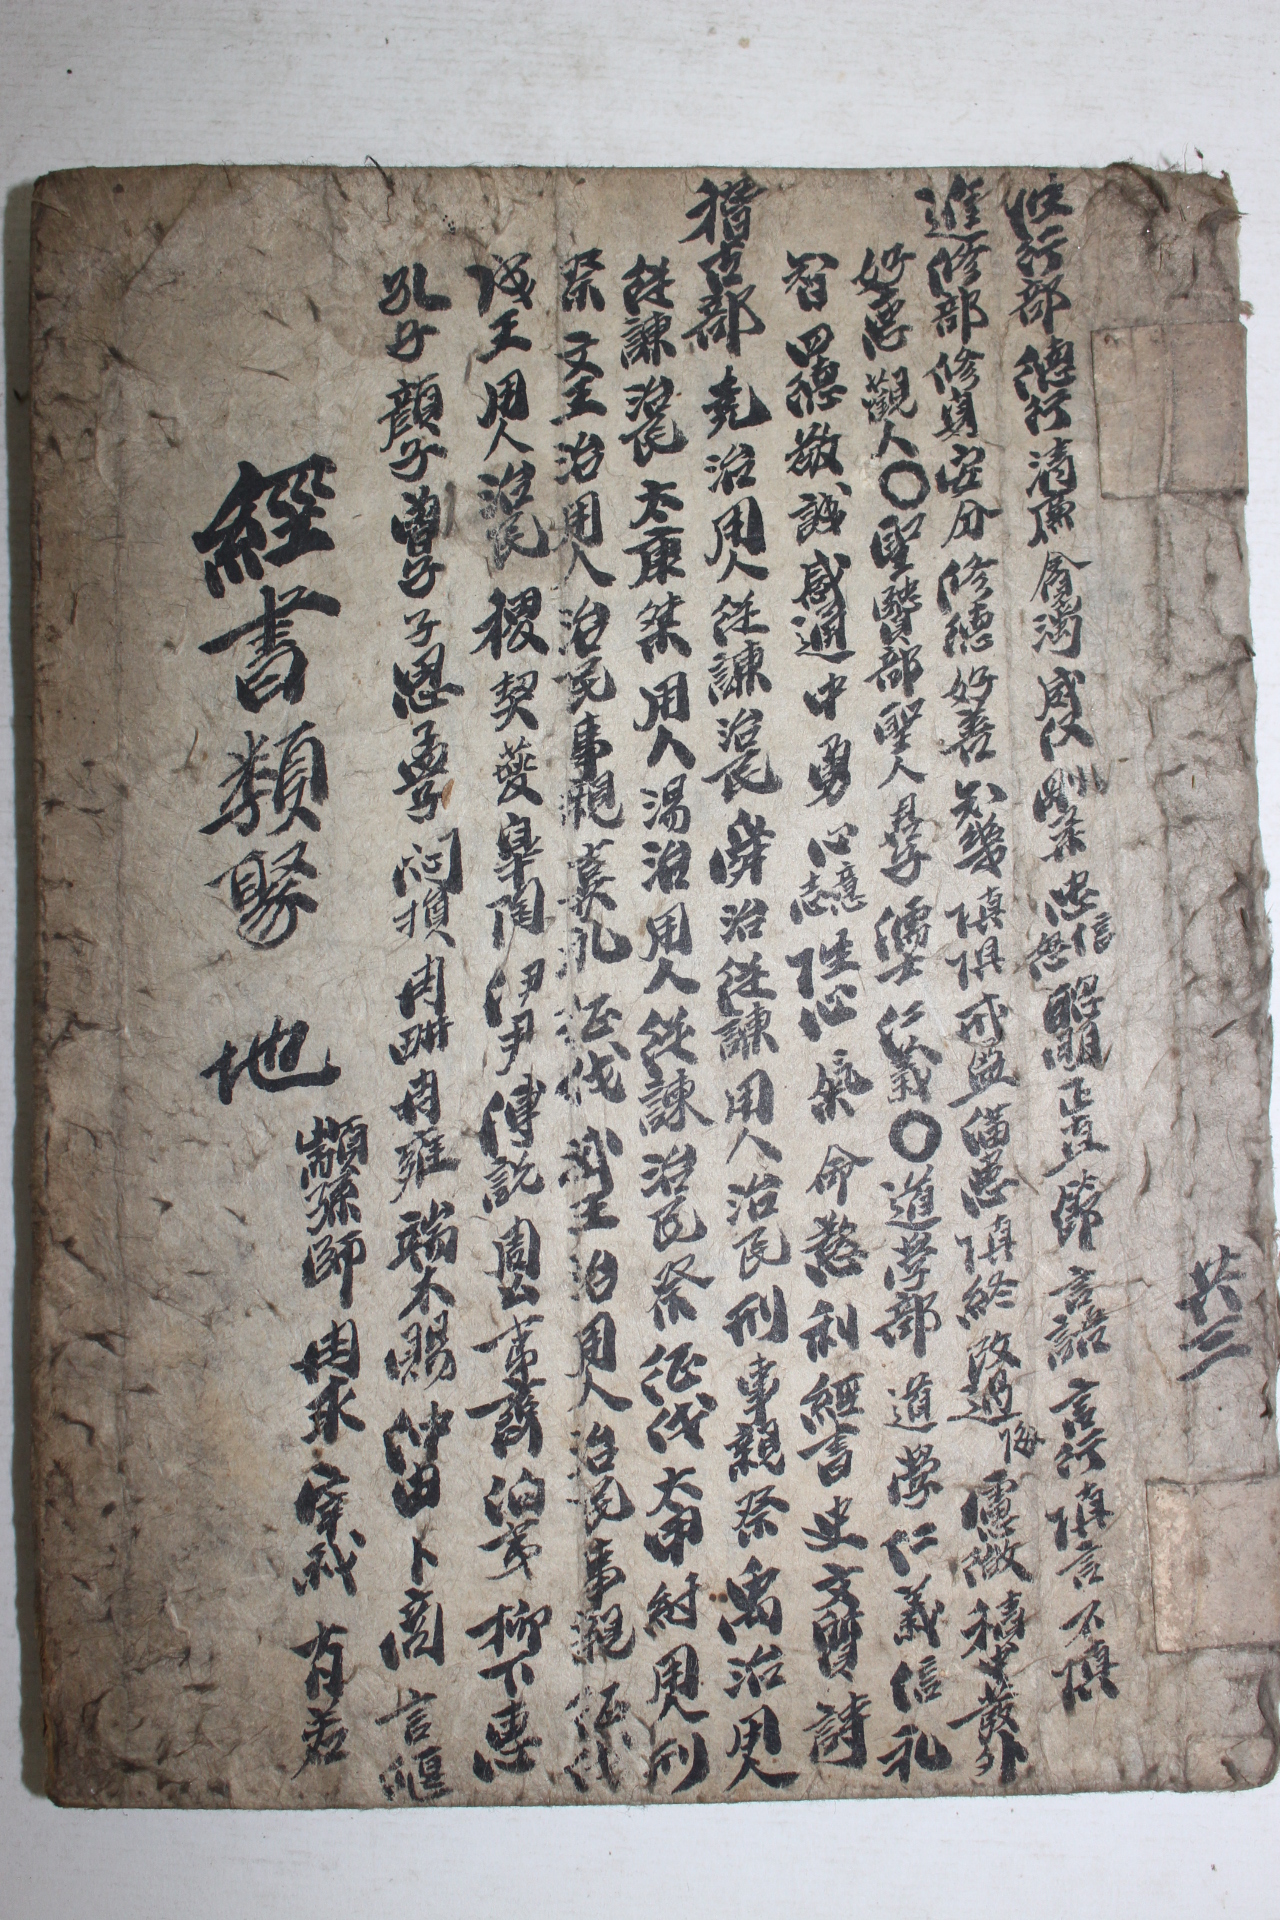 共三
行部 德行 清廉 貪濁 威仪 剛柔 忠信 恕 昭明 正直 節 言語 言行 愼言 不愼
進修部 修身 安分 修德 好善 知幾 愼惧 戒盈滿 愼終 改過 悔 慮微 積中發外
好惡 觀人 ○ 聖賢部 聖人 君子 儒士 仁義 ○ 道學部 道學 仁 義 信 礼
智 四德 敬 誠 感通 中 勇 心 志意 性心 氣 命 慾 利 經書 史 文質 詩
稽古部 堯 治 用人 從諫 治民 舜 治 從諫 用人 治民 刑 事親 祭 禹 治 用人
從諫 治民 太康 桀 用人 湯 治 用人 從諫 治民 祭 征伐 太甲 紂 用人 刑
祭 文王 治 用人 治民 事親 喪礼 征伐 武王 治 用人 治民 事親 征伐
成王 用人 治民 稷 契 夔 皐陶 伊尹 傅說 周公 夷齊 伯夷 柳下惠
孔子 顔子 曾子 子思 孟子 閔損 冉耕 冉雍 端木賜 仲由 卜商 言偃
顓孫師 冉求 宰我 有若
經書類聚 地